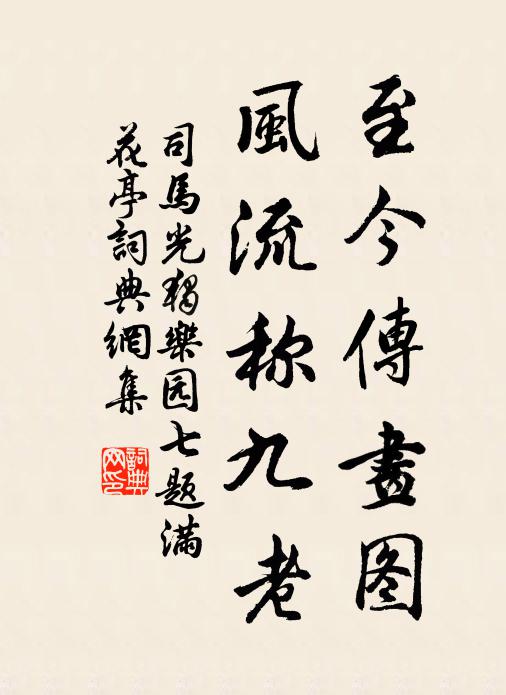 至今傳畫图
風流称九老
司馬光獨樂园七题滿
花亭詞典網集
詞典
网印